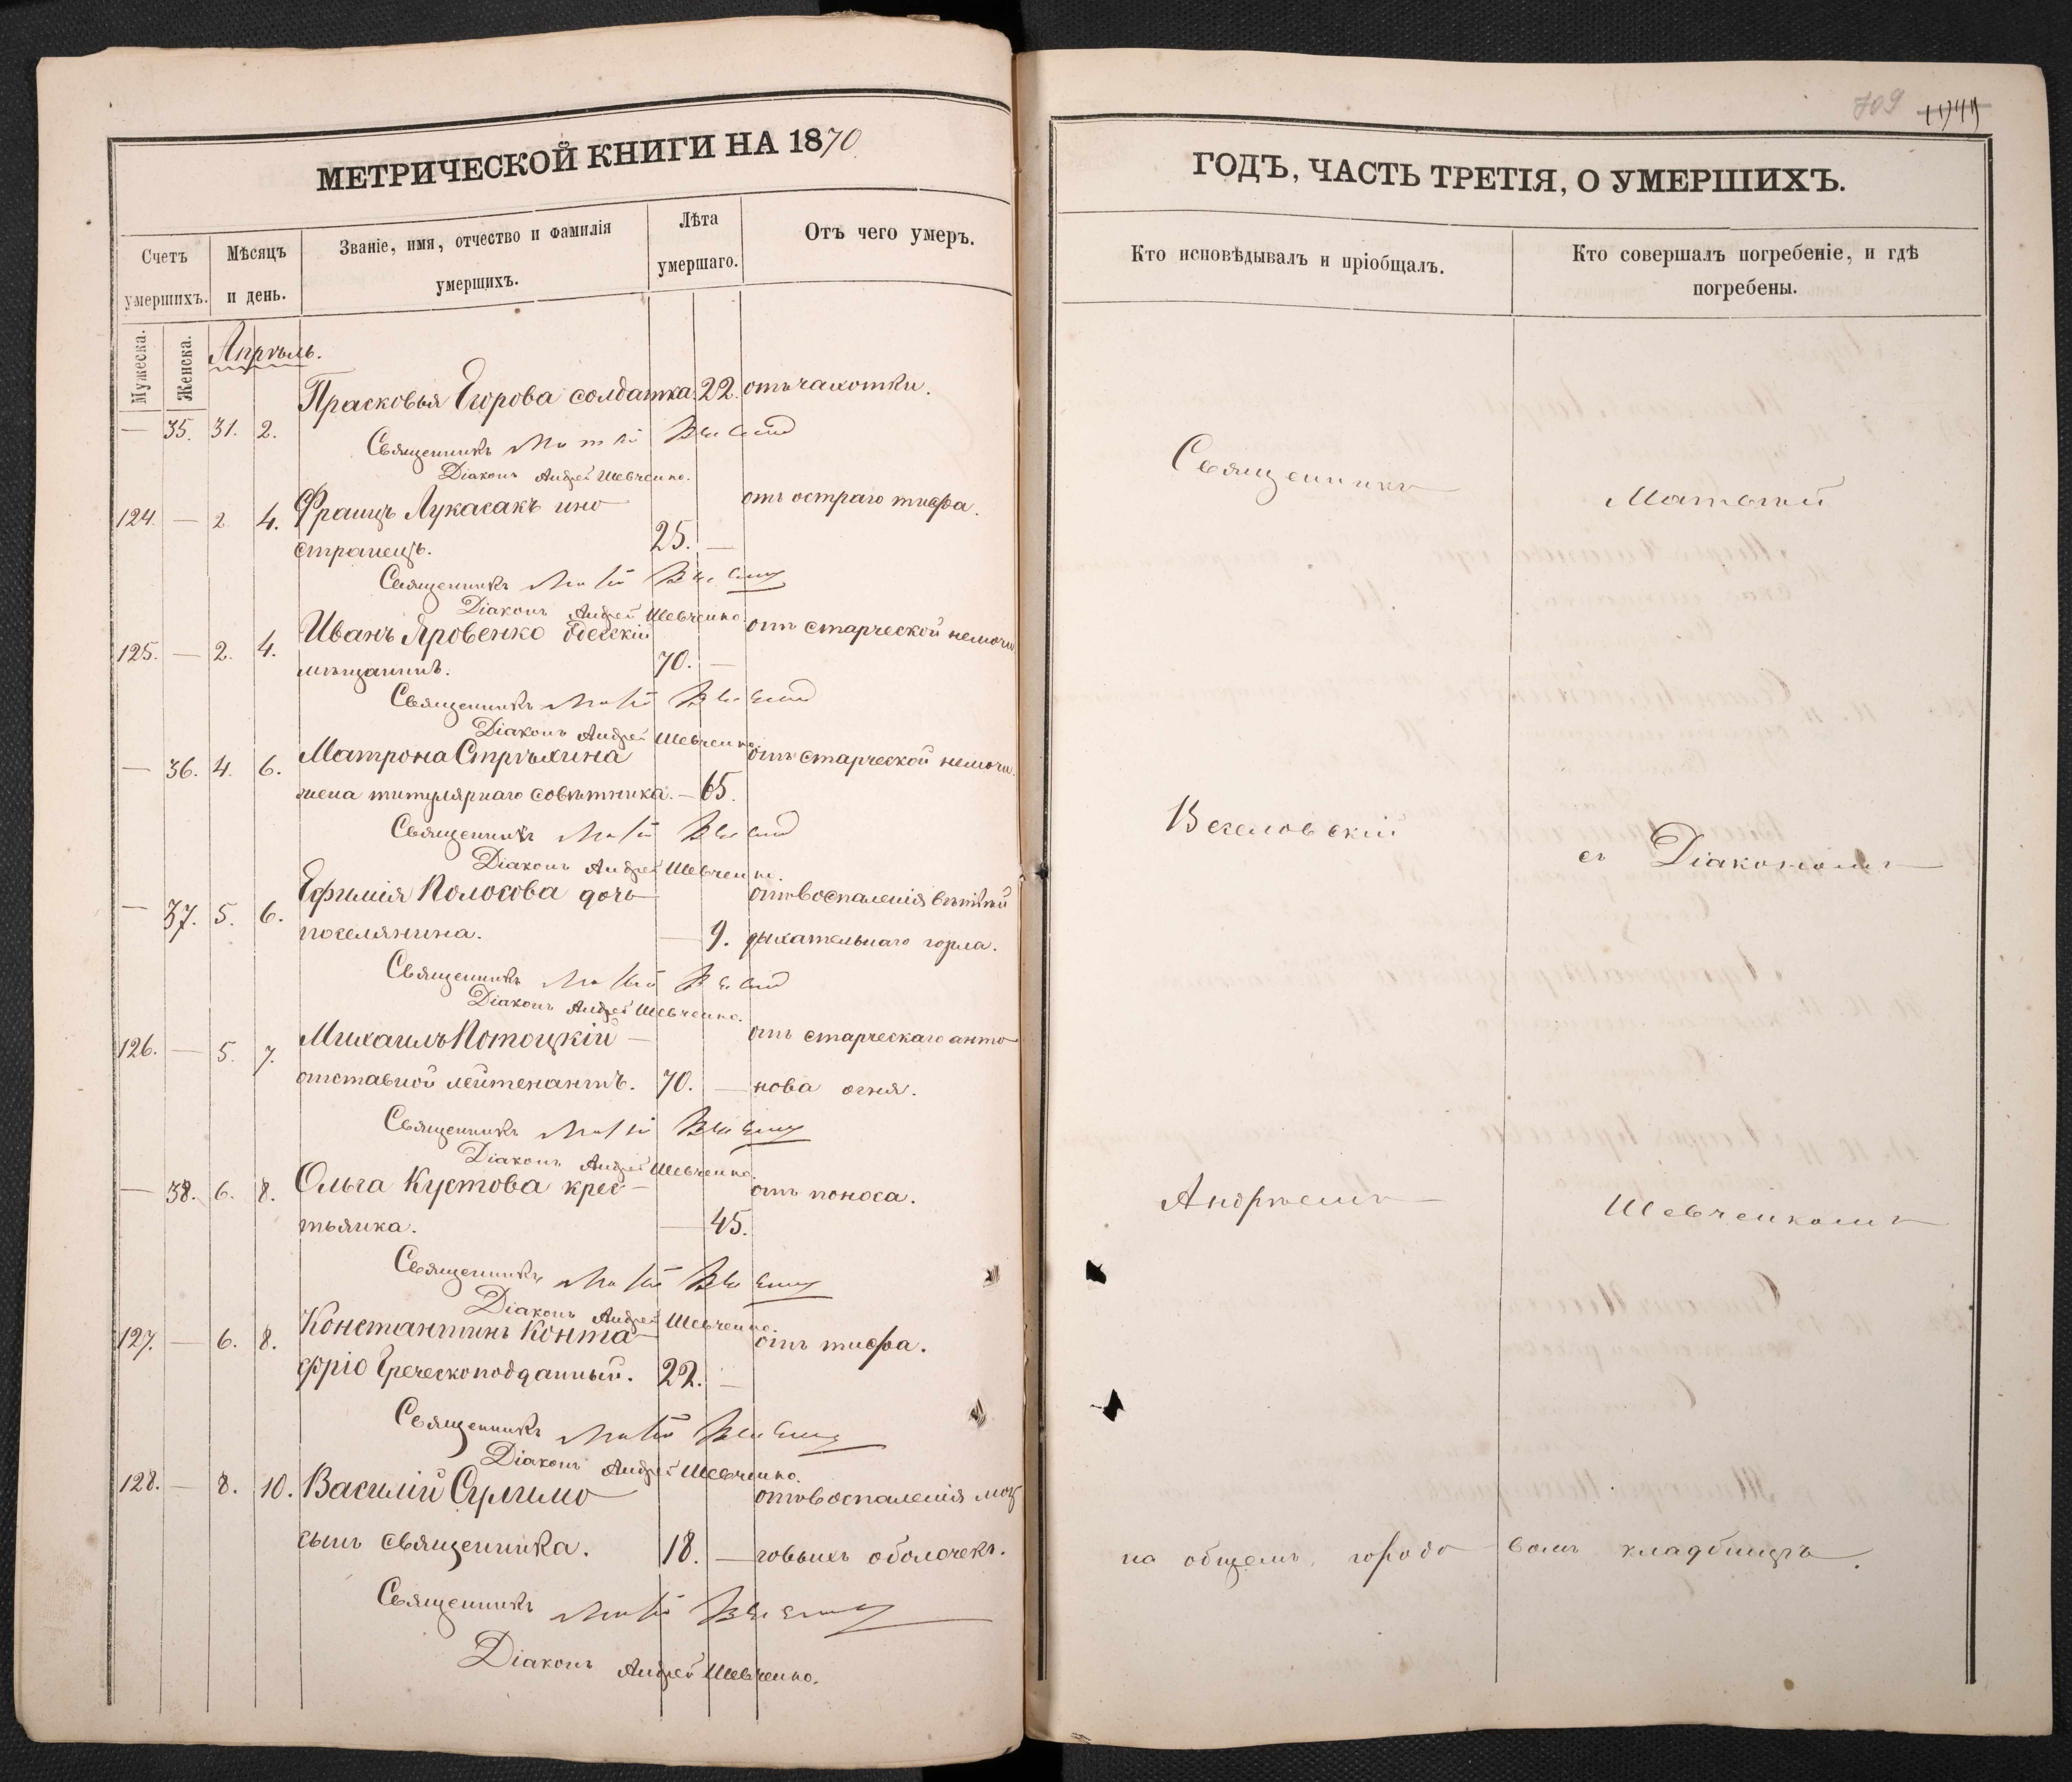 МЕТРИЧЕСКОЙ КНИГИ НА 1870
Счетъ умершихъ.
Мѣсяцъ и день.
Званіе, имя, отчество и фамилія умершихъ.
Лѣта умершаго.
Отъ чего умеръ.
Мужеска.
Женска.
Апрѣль.
— 35. 31. 2. Прасковья Егорова солдатка. 22. отъ чахотки.
Священникъ
Діаконъ Андрей Шевченко.
124. — 2 4. Францъ Лукасакъ ино отъ остраго тифа.
странецъ. 25. —
Священникъ
Діаконъ Андрей Шевченко.
125. — 2. 4. Иванъ Яровенко Одесскій отъ старческой немочи
мѣщанинъ. 70. —
Священникъ
Діаконъ Андрей Шевченко
— 36. 4. 6. Матрона Стрѣхина отъ старческой немочи.
жена титулярнаго совѣтника. — 65.
Священникъ
Діаконъ Андрей Шевченко.
— 37. 5. 6. Ефимія Колосова дочь отъ воспаленія вѣтвей
поселянина. — 9. дыхательнаго горла.
Священникъ
Діаконъ Андрей Шевченко.
126. — 5. 7. Михаилъ Потоцкій — отъ старческаго анто
отставной лейтенантъ. 70. — нова огня.
Священникъ
Діаконъ Андрей Шевченко.
— 38. 6. 8. Ольга Кустова крес— отъ поноса.
тьянка. — 45.
Священникъ
Діаконъ Андрей Шевченко.
127. — 6. 8. Константинъ Конта— отъ тифа.
фріо Греческоподданный. 22. —
Священникъ
Діаконъ Андрей Шевченко.
128. — 8. 10. Василій отъ воспаленія моз
сынъ священника. 18. — говыхъ оболочекъ.
Священникъ
Діаконъ Андрей Шевченко.
709
ГОДЪ, ЧАСТЬ ТРЕТІЯ, О УМЕРШИХЪ.
Кто исповѣдывалъ и пріобщалъ.
Кто совершалъ погребеніе, и гдѣ погребены.
Священникъ Матѳий
Веселовскій съ Діакономъ
Андреемъ Шевченкомъ
на общемъ городо вомъ кладбищѣ.